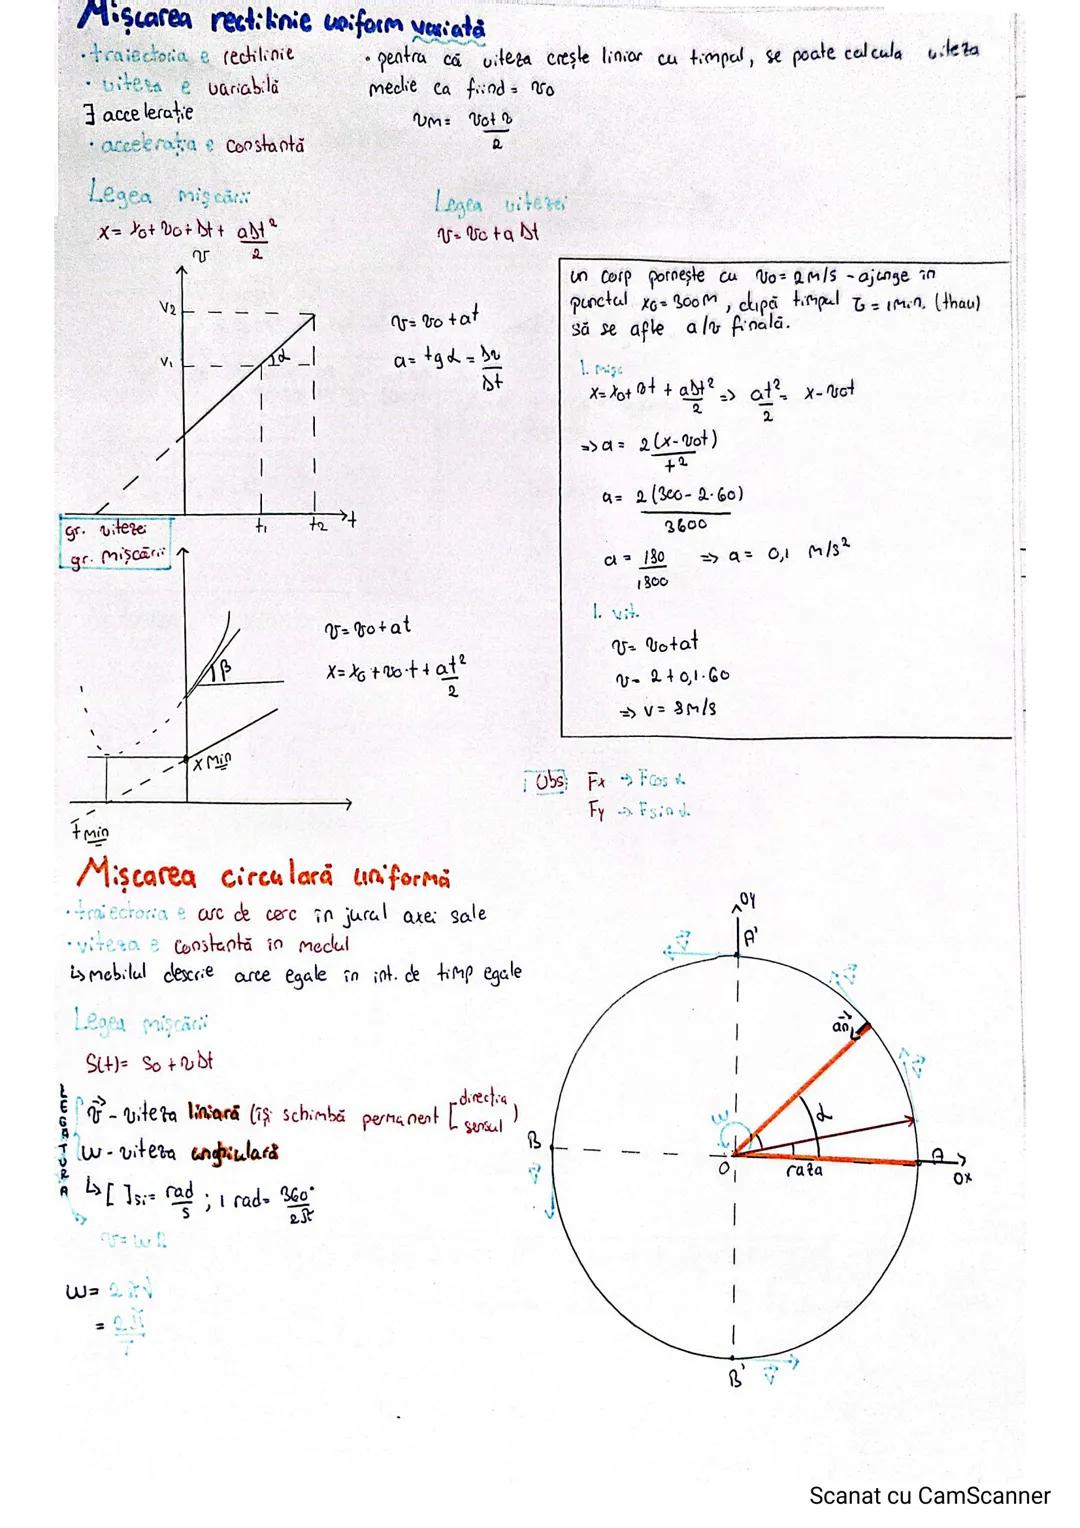 Mișcarea rectilinie uniform variată
· traiectoria e rectilinie
· viteza e variabilă
∃ accelerație
· accelerația e constantă
· pentru că viteza crește liniar cu timpul, se poate calcula viteza
medie ca fiind = v0
vm = v0+v
2
Legea mișcării
x = x0 + v0 + Δt + aΔt²
2
Legea vitezei
v = v0 + a Δt
v
V2
V1
α
t1
t2
t
v = v0 + at
a = tg α = Δv
Δt
gr. vitezei
gr. mișcării
β
x min
t min
v = v0 + at
x = x0 + v0·t + at²
2
un corp pornește cu v0 = 2m/s - ajunge în
punctul x0 = 300m, după timpul τ = 1min. (thau)
să se afle a/v finală.
l. mișc
x = x0 + vt + aΔt² => at² = x - v0t
2 2
=> a = 2(x-v0t)
t²
a = 2(300 - 2·60)
3600
a = 180 => a = 0,1 m/s²
1800
l. vit.
v = v0+at
v = 2 + 0,1·60
=> v = 8m/s
! Obs: Fx → Fcos α
Fy → Fsin α
Mișcarea circulară uniformă
· traiectoria e arc de cerc în jurul axei sale
· viteza e constantă în modul
↳ mobilul descrie arce egale în int. de timp egale
Legea mișcării
S(t) = S0 + vΔt
LEGATURA
v⃗ - viteza liniară (își schimbă permanent [direcția
sensul)
w - viteza unghiulară
↳ [ ]si = rad ; 1 rad = 360°
s 2π
v = w R
w = 2πν
= 2π
T
Oy
A'
v⃗
v⃗
an
v⃗
w
α
B
v⃗
O
raza
A
Ox
B'
v⃗
Scanat cu CamScanner